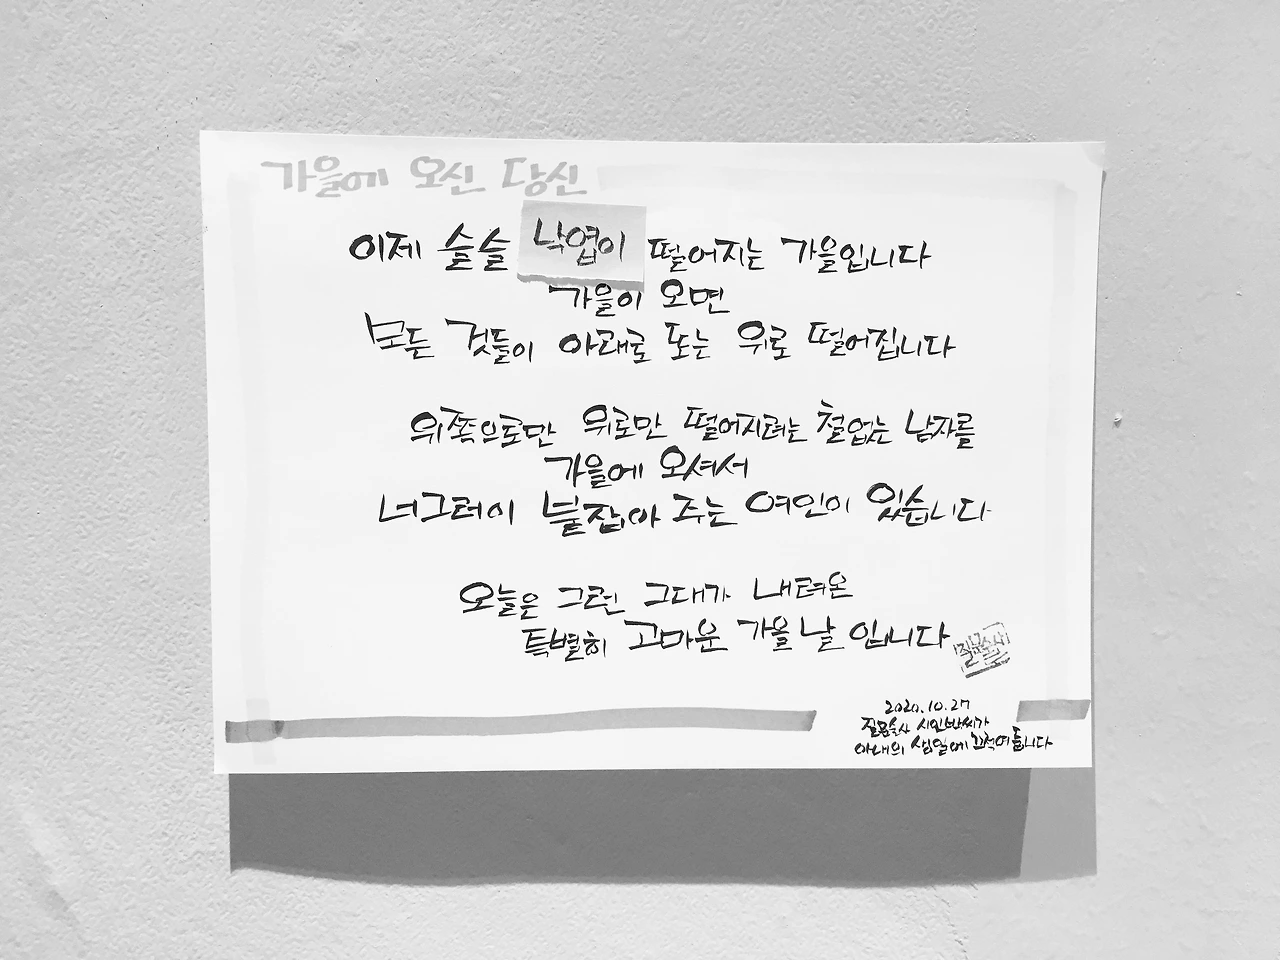 가을에 오신 당신
이제 슬슬 낙엽이 떨어지는 가을입니다
가을이 오면
모든 것들이 아래로 또는 위로 떨어집니다
위쪽으로만 위로만 떨어지려는 철없는 남자를
가을에 오셔서
너그러이 붙잡아 주는 여인이 있습니다
오늘은 그런 그대가 내려온
특별히 고마운 가을 날 입니다
질문술사
2020.10.27
질문술사 시인박씨가
아내의 생일에 끄적여 둡니다